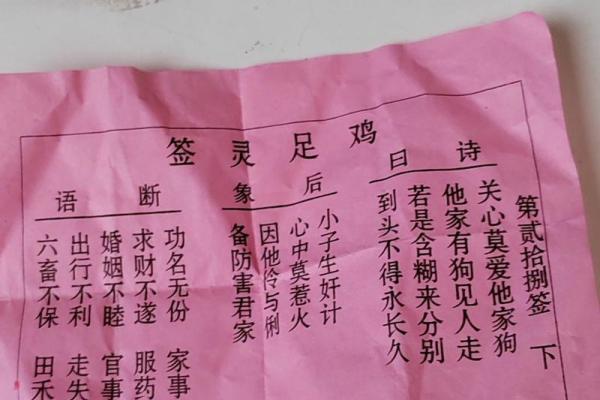 鸡足灵签
第贰拾捌签 下
诗曰
关心莫爱他家狗
他家有狗见人走
若是含糊来分别
到头不得永长久
后象
小子生奸计
心中莫惹火
因他伶与俐
备防害君家
断语
功名无份 家事
求财不遂 服药
婚姻不睦 官事
出行不利 走失
六畜不保 田禾